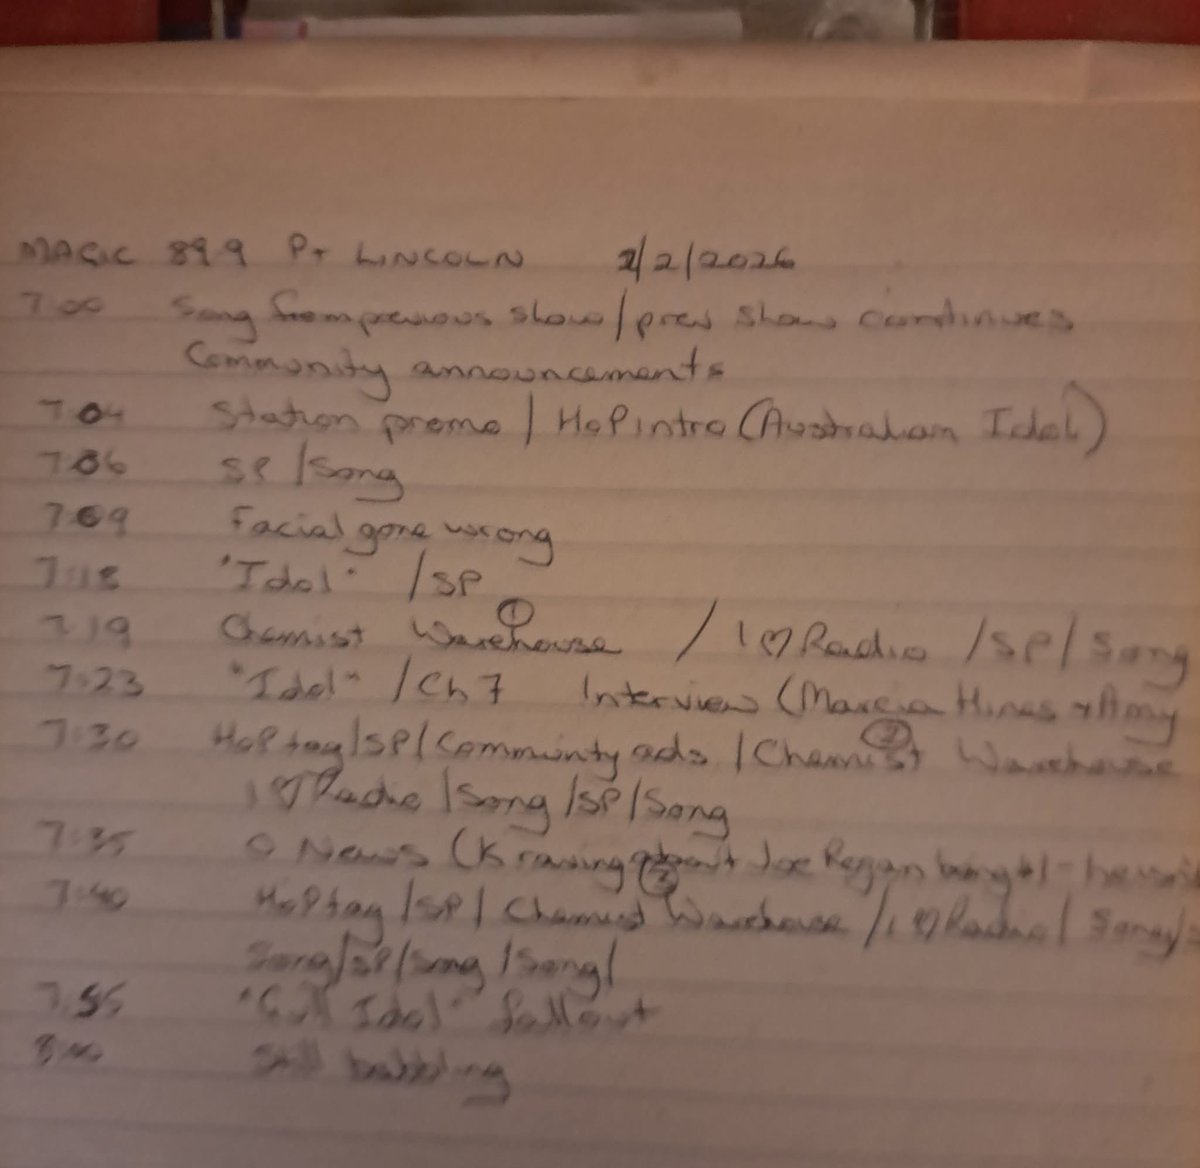 MAGIC 89.9 Pt LINCOLN 2/2/2026
7:00 Song from previous show / prev show continues
Community announcements
7:04 Station promo / H&P intro (Australian Idol)
7:06 SP / Song
7:09 Facial gone wrong
7:18 "Idol" / SP
7:19 Chemist Warehouse ① / I ♡ Radio / SP / Song
7:23 "Idol" / Ch 7 Interview (Marcia Hines + Amy
7:30 H&P tag / SP / Community ads / Chemist Warehouse ②
I ♡ Radio / Song / SP / Song
7:35 O News (K raving about Joe Rogan being
7:40 H&P tag / SP / Chemist Warehouse ③ / I ♡ Radio / Song /
Song / SP / Song / Song /
7:55 Idol" fallout
8:00 Still babbling